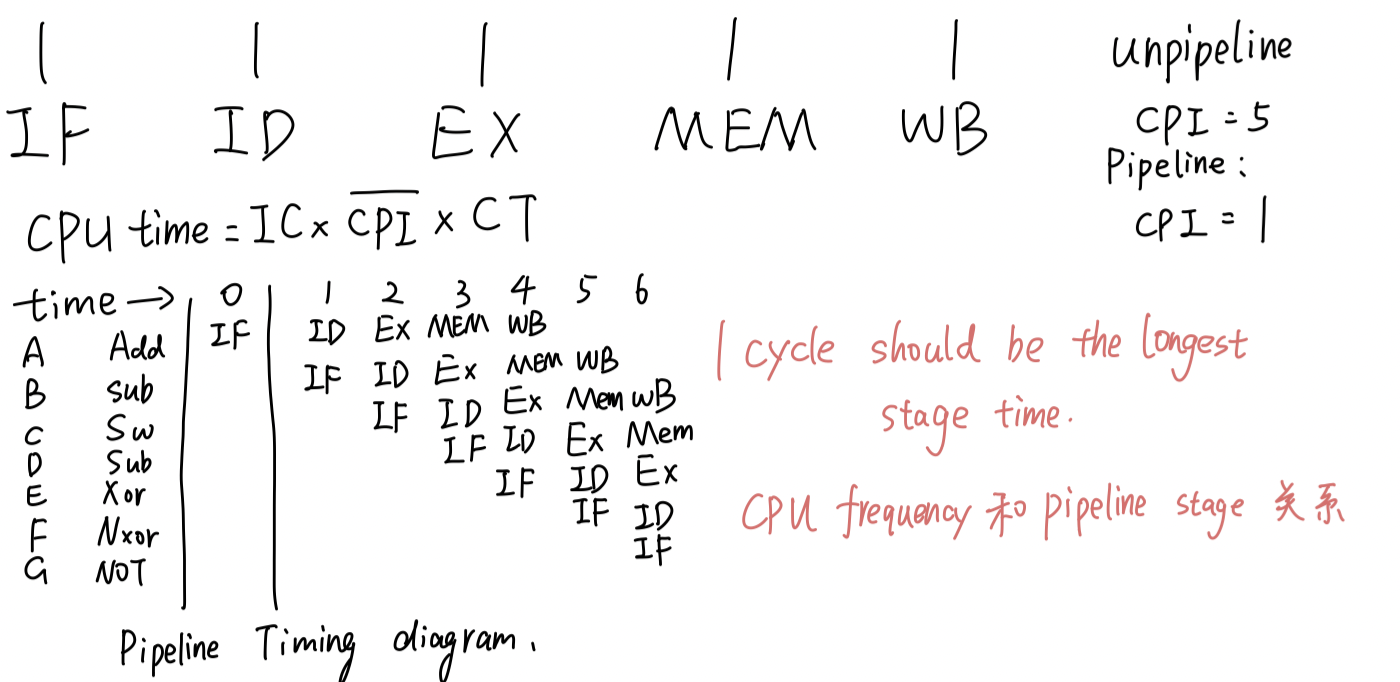 IF ID EX MEM WB
Unpipeline
CPI = 5
Pipeline:
CPI = 1
CPU time = IC × CPI × CT
time → 0 1 2 3 4 5 6
A Add IF ID Ex MEM WB
B Sub IF ID Ex MEM WB
C Sw IF ID Ex Mem WB
D Sub IF ID Ex Mem
E Xor IF ID Ex
F Nxor IF ID
G NOT IF
Pipeline Timing diagram.
1 cycle should be the longest
stage time.
CPU frequency 和 pipeline stage 关系